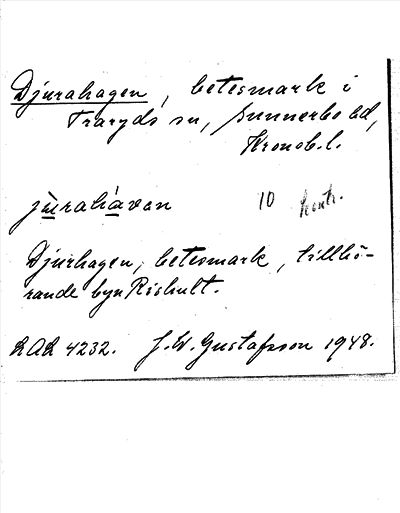 Djurahagen, betesmark i
Traryds sn, Sunnerbo hd,
Kronob. l.
jùrahávan 10 kontr.
Djurhagen, betesmark, tillhö-
rande byn Rishult.
LAL 4232. J. W. Gustafsson 1948.